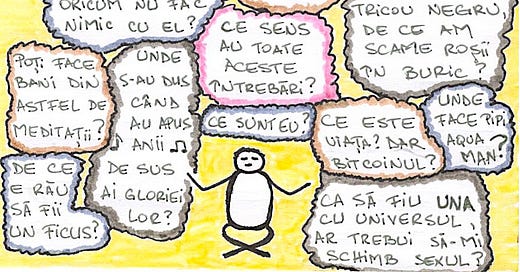 ORICUM NU FAC
NIMIC CU EL?
CE SENS
AU TOATE
ACESTE
ÎNTREBĂRI?
TRICOU NEGRU,
DE CE AM
SCAME ROȘII
ÎN BURIC?
POȚI FACE
BANI DIN
ASTFEL DE
MEDITAȚII?
UNDE
S-AU DUS
CÂND
AU APUS
♪ ANII ♫
DE SUS
AI GLORIEI
LOR?
CE SUNT EU?
CE ESTE
VIAȚA? DAR
BITCOINUL?
UNDE
FACE PIPI
AQUA
MAN?
DE CE
E RĂU
SĂ FII
UN FICUS?
CA SĂ FIU UNA
CU UNIVERSUL,
AR TREBUI SĂ-MI
SCHIMB SEXUL?